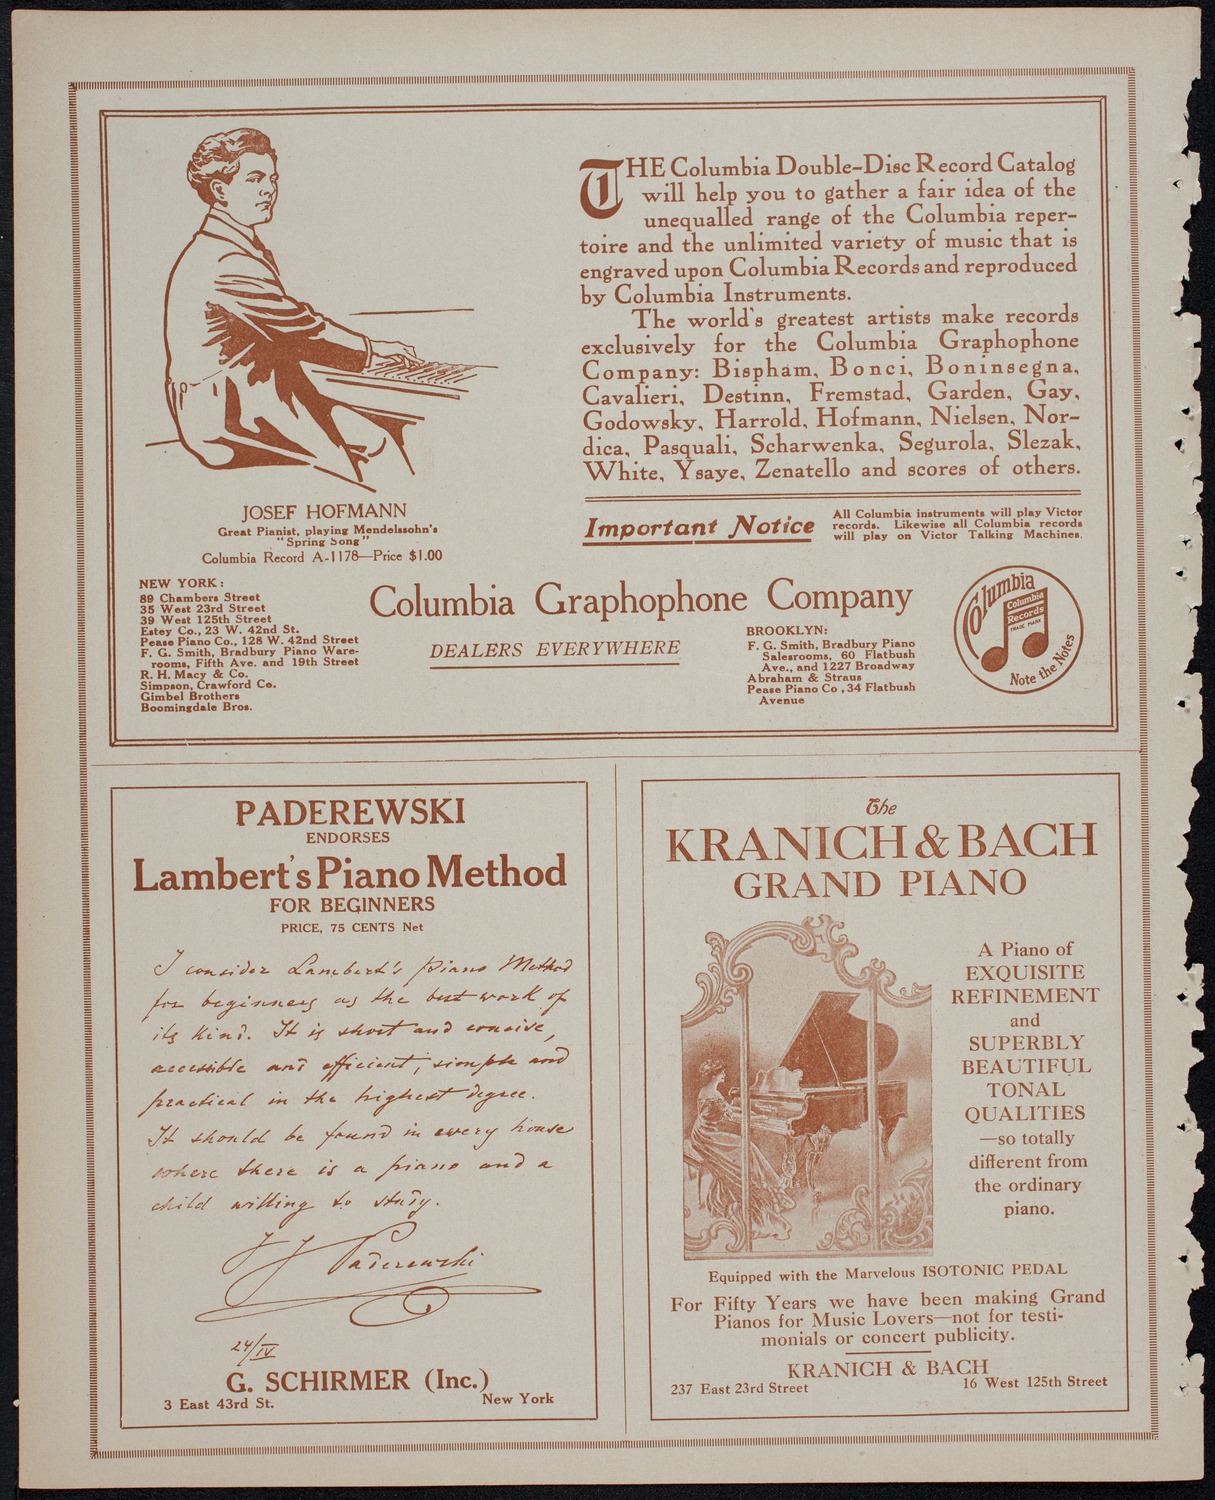 THE Columbia Double-Disc Record Catalog
will help you to gather a fair idea of the
unequalled range of the Columbia reper-
toire and the unlimited variety of music that is
engraved upon Columbia Records and reproduced
by Columbia Instruments.
The world's greatest artists make records
exclusively for the Columbia Graphophone
Company: Bispham, Bonci, Boninsegna,
Cavalieri, Destinn, Fremstad, Garden, Gay,
Godowsky, Harrold, Hofmann, Nielsen, Nor-
dica, Pasquali, Scharwenka, Segurola, Slezak,
White, Ysaye, Zenatello and scores of others.
JOSEF HOFMANN
Great Pianist, playing Mendelssohn's
"Spring Song"
Columbia Record A-1178—Price $1.00
Important Notice
All Columbia instruments will play Victor
records. Likewise all Columbia records
will play on Victor Talking Machines.
NEW YORK:
89 Chambers Street
35 West 23rd Street
39 West 125th Street
Estey Co., 23 W. 42nd St.
Pease Piano Co., 128 W. 42nd Street
F. G. Smith, Bradbury Piano Ware-
rooms, Fifth Ave. and 19th Street
R. H. Macy & Co.
Simpson, Crawford Co.
Gimbel Brothers
Boomingdale Bros.
Columbia Graphophone Company
DEALERS EVERYWHERE
BROOKLYN:
F. G. Smith, Bradbury Piano
Salesrooms, 60 Flatbush
Ave., and 1227 Broadway
Abraham & Straus
Pease Piano Co., 34 Flatbush
Avenue
Columbia
Columbia
Records
TRADE MARK
Note the Notes
PADEREWSKI
ENDORSES
Lambert's Piano Method
FOR BEGINNERS
PRICE, 75 CENTS Net
I consider Lambert's Piano Method
for beginners as the best work of
its kind. It is short and concise,
accessible and efficient, simple and
practical in the highest degree.
It should be found in every house
where there is a piano and a
child willing to study.
I J Paderewski
24/IV
G. SCHIRMER (Inc.)
3 East 43rd St.
New York
The
KRANICH & BACH
GRAND PIANO
A Piano of
EXQUISITE
REFINEMENT
and
SUPERBLY
BEAUTIFUL
TONAL
QUALITIES
—so totally
different from
the ordinary
piano.
Equipped with the Marvelous ISOTONIC PEDAL
For Fifty Years we have been making Grand
Pianos for Music Lovers—not for testi-
monials or concert publicity.
KRANICH & BACH
237 East 23rd Street
16 West 125th Street